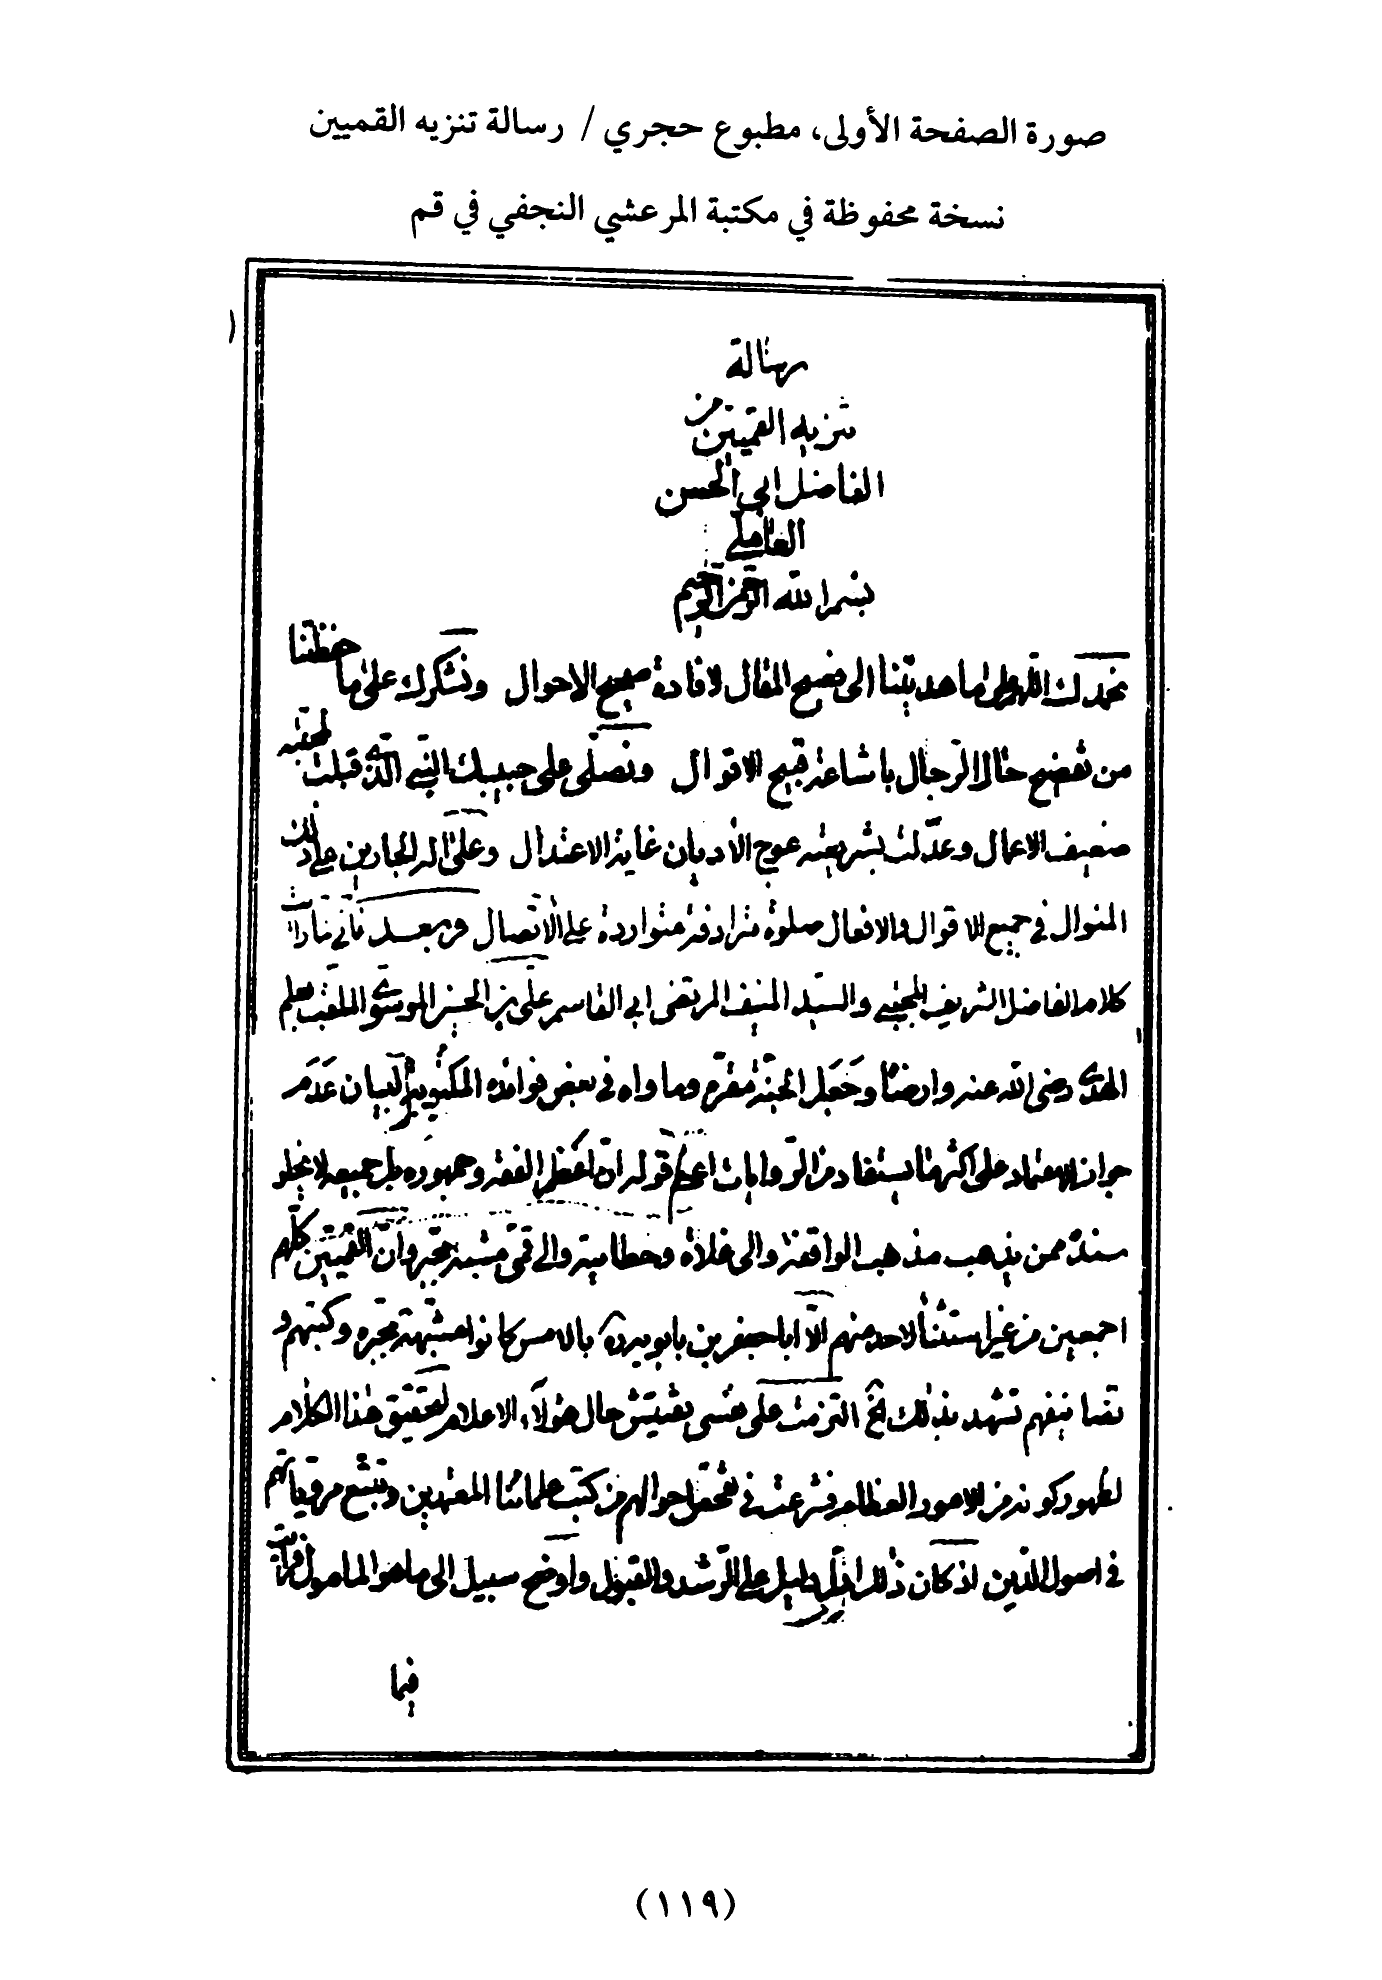 صورة الصفحة الأولى، مطبوع حجري / رسالة تنزيه القميين
نسخة محفوظة في مكتبة المرعشي النجفي في قم
١
رسالة
تنزيه القميين من
الفاضل ابي الحسن
العاملي
بسم الله الرحمن الرحيم
نحمدك اللهم على ما هديتنا الى فصيح المقال لافادة صحيح الاحوال ونشكرك على ما حفظتنا
من تفضيح حال الرجال باشاعة قبيح الاقوال ونصلى على حبيبك النبي الذي قبلت لمحبته
ضعيف الاعمال وعدلت بشريعته عوج الاديان غاية الاعتدال وعلى اله الجارين على ذلك
المنوال في جميع الاقوال والافعال صلوة مترادفة متواردة على الاتصال وبعد فانى لما رايت
كلام الفاضل الشريف والسيد المنيف المرتضى ابى القاسم على بن الحسين الموسوي الملقب بعلم
الهدى رضى الله عنه وارضاه وجعل الجنة مقره وماواه في بعض فوائده المكتوبة لبيان عدم
جواز الاعتماد على اكثر ما يستفاد من الروايات اعنى قوله ان اعظم الفقه وجمهوره بل جميعه لا يخلو
سنده ممن يذهب مذهب الواقفة والى غلاة وخطابية والى قمى مشبه مجبر وان القميين كلهم
اجمعين من غير استثناء لاحد منهم الا ابا جعفر بن بابويه ره بالامس كانوا مشبهة مجبرة وكتبهم و
تصانيفهم تشهد بذلك الخ التزمت على نفسى تفتيش حال هؤلاء الاعلام لتحقيق هذا الكلام
لظهور كونه من الامور العظام فشرعت في تفحص احوالهم من كتب علمائنا المعتمدين وتتبع مروياتهم
في اصول الدين اذ كان ذلك ادل دليل على الرشد والقبول واوضح سبيل الى ما هو المامول فرايت
فيما
(١١٩)